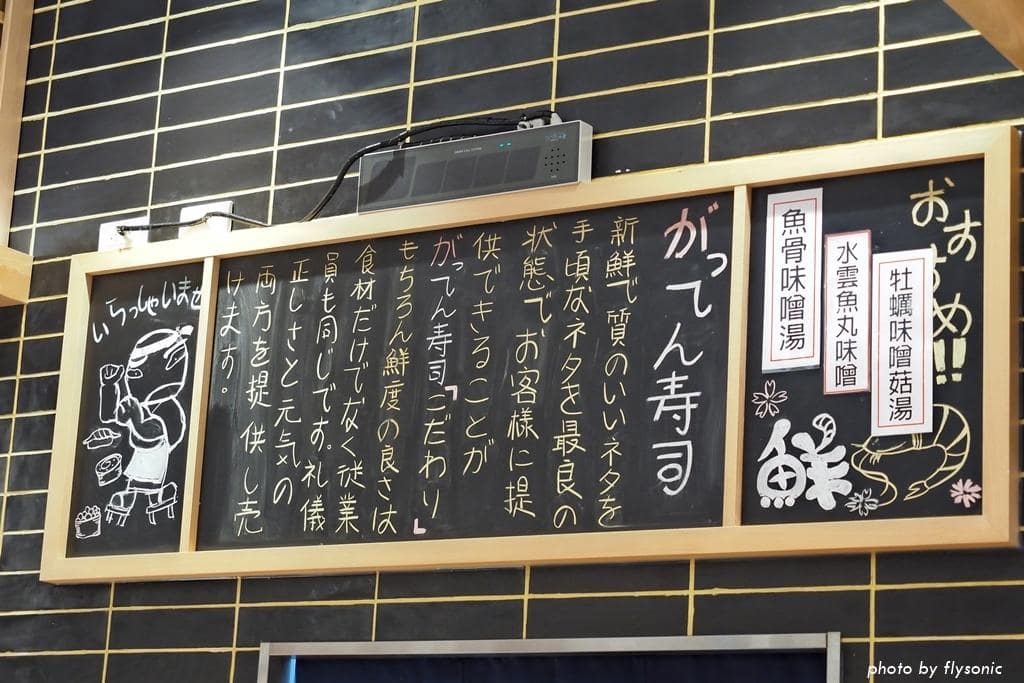 おすすめ!!
魚骨味噌湯
水雲魚丸味噌
牡蠣味噌菇湯
鮮
がってん寿司
新鮮で質のいいネタを
手頃なネタを最良の
状態でお客様に提
供できることが
がってん寿司「こだわり」
もちろん鮮度の良さは
食材だけでなく従業
員も同じです。礼儀
正しさと元気の
両方を提供し売
けます。
いらっしゃいませ
photo by flysonic